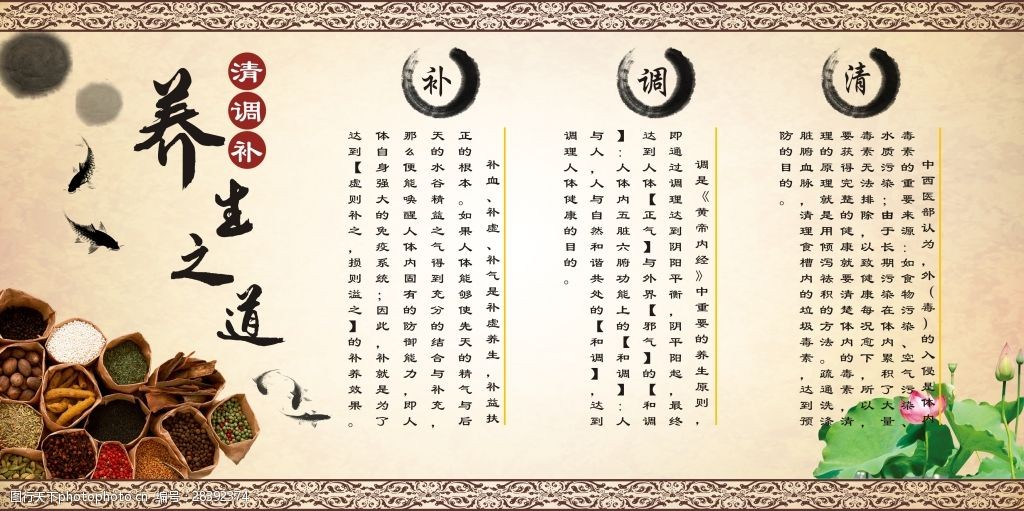 养生之道
清调补
清
中西医部认为，外（毒）的入侵是体内
毒素的重要来源：如食物污染、空气污染、
水质污染；由于长期污染在体内累积了大量
毒素无法排除，以致健康每况愈下，所以，
要获得完整的健康就要清楚体内的毒素，清
理的原理就是用倾泻祛积的方法。疏通洗涤
脏腑血脉，清理食槽内的垃圾毒素，达到预
防的目的。
调
调是《黄帝内经》中重要的养生原则，
即通过调理达到阴阳平衡，阴平阳起，最终
达到人体【正气】与外界【邪气】的【和调
】：人体内五脏六腑功能上的【和调】：人
与人，人与自然和谐共处的【和调】，达到
调理人体健康的目的。
补
补血、补虚、补气是补虚养生，补益扶
正的根本。如果人体能够使先天的精气与后
天的水谷精益之气得到充分的结合与补充，
那么便能唤醒人体内固有的防御能力，即人
体自身强大的免疫系统；因此，补就是为了
达到【虚则补之，损则溢之】的补养效果。
图行天下photophoto.cn 编号：28392374